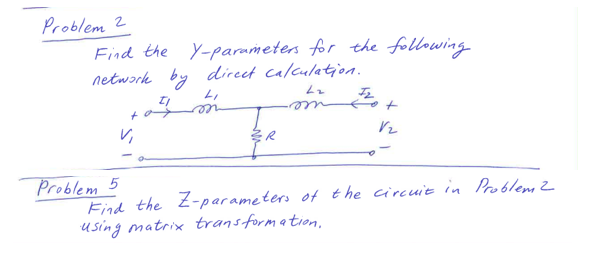 Problem 2
Find the Y-parameters for the following
network by direct calculation.
I1 L1 L2 I2
+ +
V1 R V2
- -
Problem 5
Find the Z-parameters of the circuit in Problem 2
using matrix transformation.